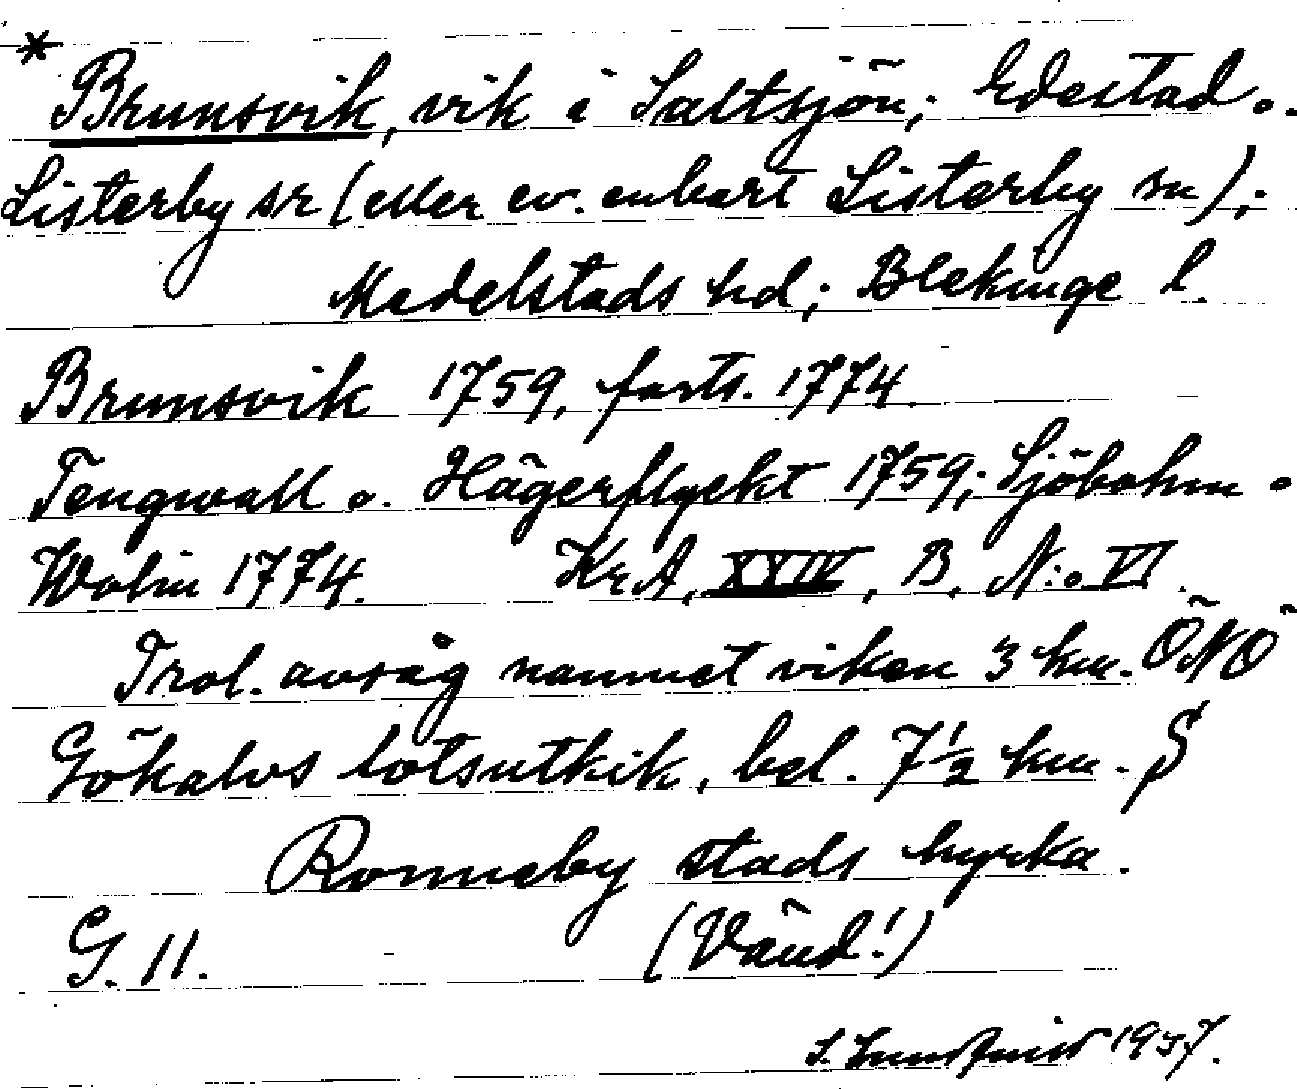 * Brunsvik, vik i Saltsjön; Edestad o.
Listerby sr (eller ev. enbart Listerby sn);
Medelstads hd; Blekinge l.
Brunsvik 1759, forts. 1774.
Tengwall o. Hägerflyckt 1759; Sjöbohm o
Wolin 1774. KrA, XXIV, B, N:o VI.
Trol. avsåg namnet viken 3 km. ÖNÖ
Gökalvs lotsutkik, bel. 7½ km. S
Ronneby stads kyrka.
G. 11. (Vänd!)
S. 19